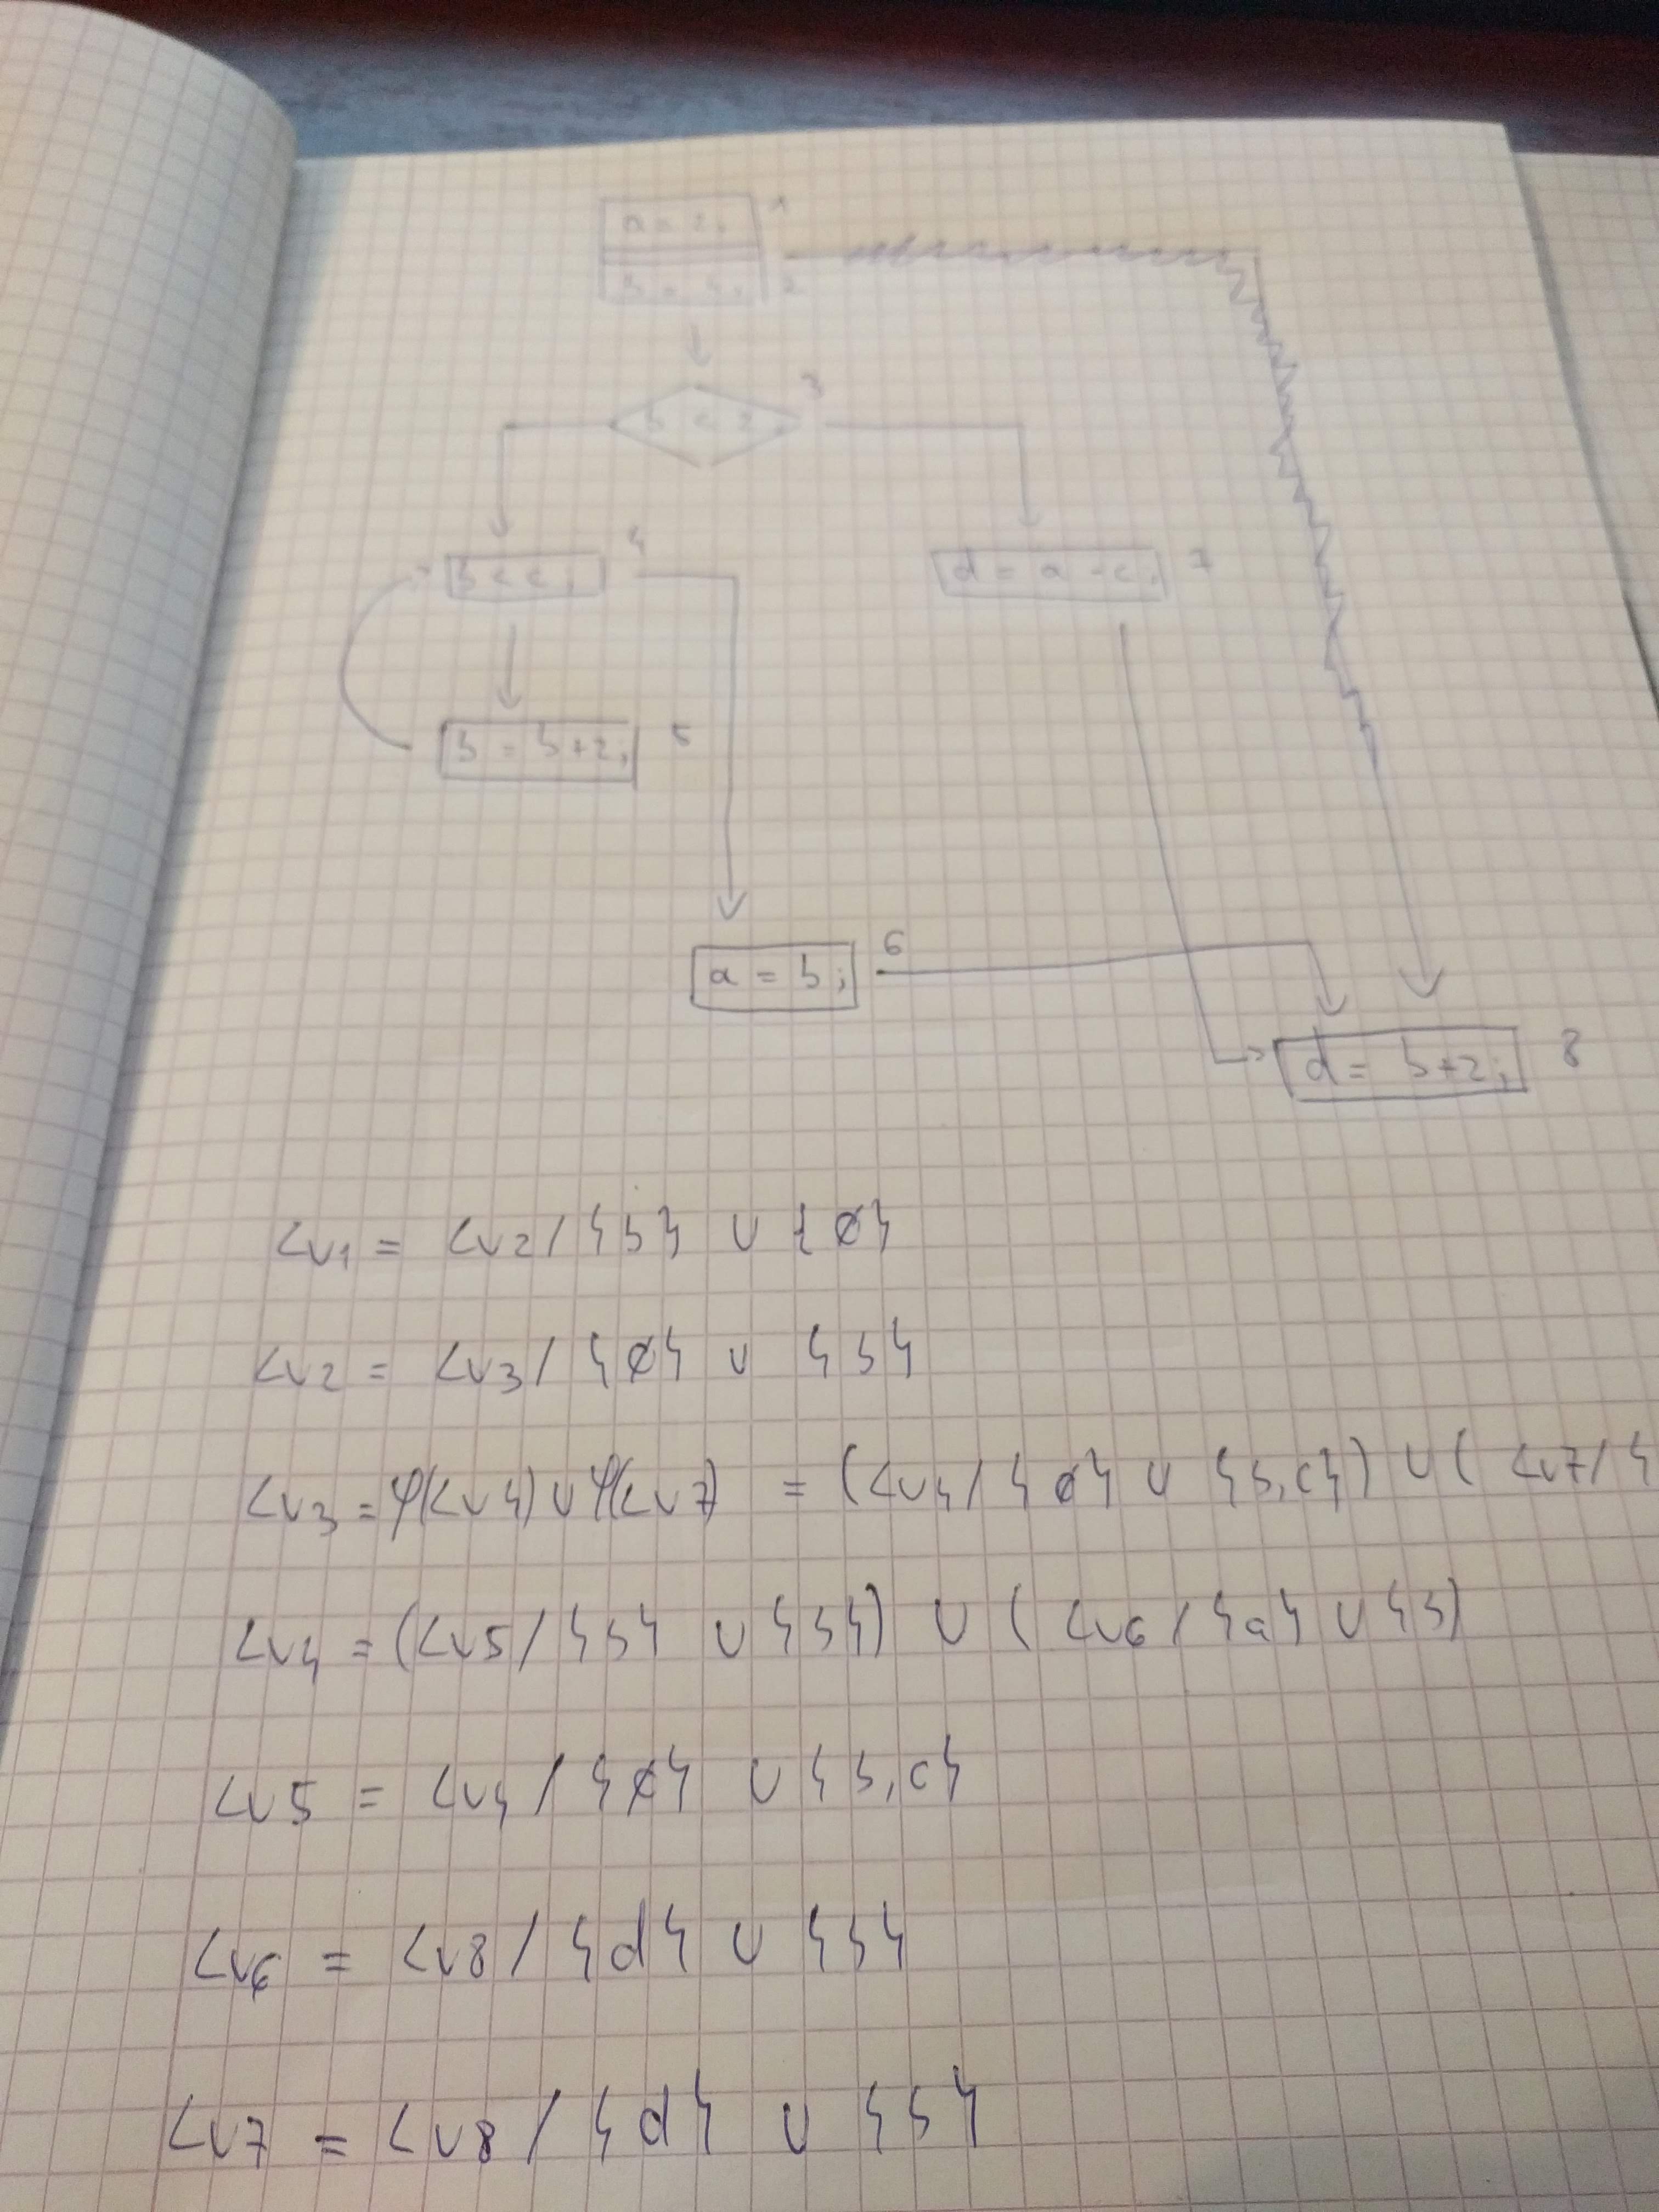 a = 2; 1
b = 4; 2
b < 2 3
b < c; 4
d = a - c; 7
b = b+2; 5
a = b; 6
d = b+2; 8
LV1 = LV2 / {b} ∪ {∅}
LV2 = LV3 / {∅} ∪ {b}
LV3 = φ(LV4) ∪ φ(LV7) = (LV4 / {∅} ∪ {b,c}) ∪ ( LV7 / {
LV4 = (LV5 / {b} ∪ {b}) ∪ ( LV6 / {a} ∪ {b)
LV5 = LV4 / {∅} ∪ {b,c}
LV6 = LV8 / {d} ∪ {b}
LV7 = LV8 / {d} ∪ {b}